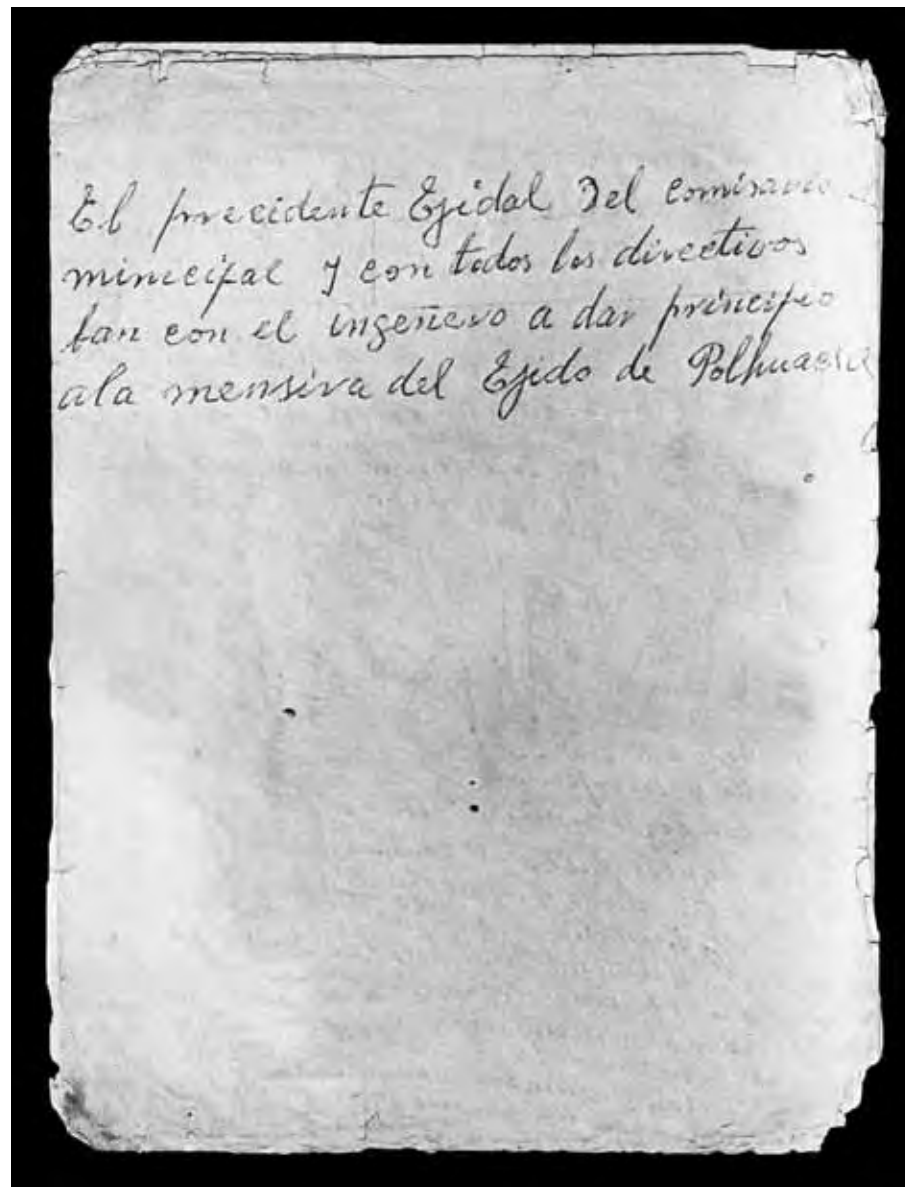 El precidente Ejidal Del comisario
minicipal y con todos los directivos
ban con el ingeñero a dar principio
ala mensira del Ejido de